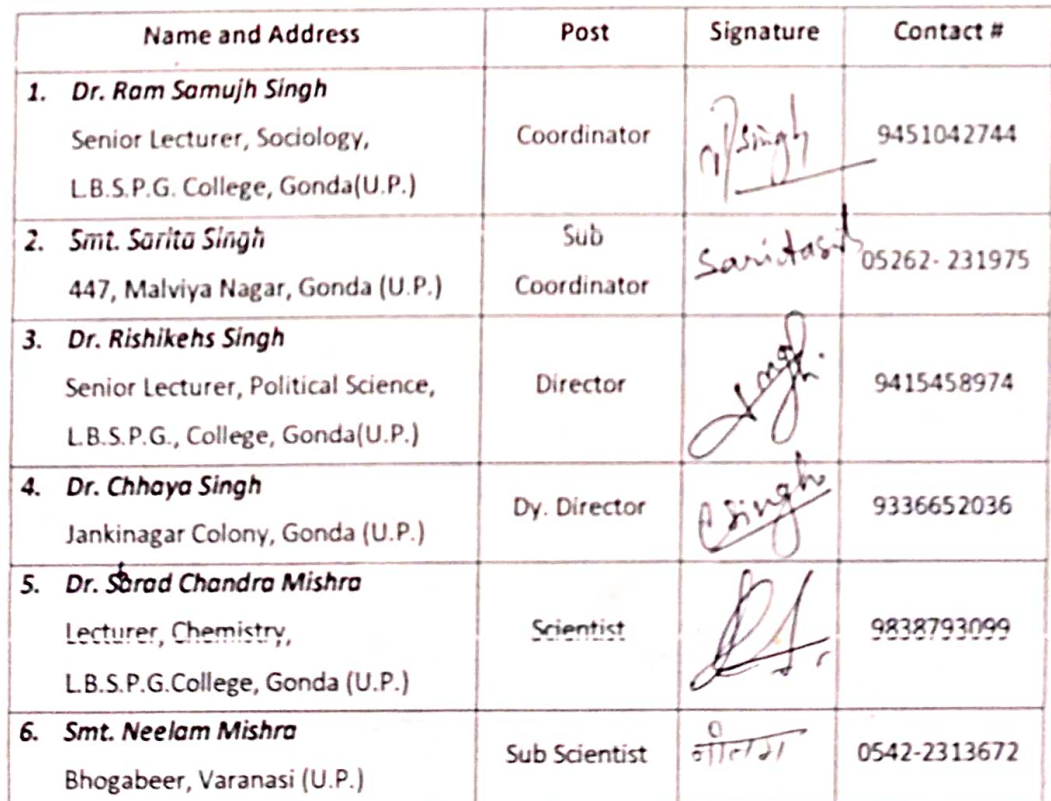 Name and Address Post Signature Contact #
1. Dr. Ram Samujh Singh
Senior Lecturer, Sociology,
L.B.S.P.G. College, Gonda(U.P.)
Coordinator
Singh
9451042744
2. Smt. Sarita Singh
447, Malviya Nagar, Gonda (U.P.)
Sub
Coordinator
05262- 231975
3. Dr. Rishikehs Singh
Senior Lecturer, Political Science,
L.B.S.P.G., College, Gonda(U.P.)
Director
9415458974
4. Dr. Chhaya Singh
Jankinagar Colony, Gonda (U.P.)
Dy. Director
CSingh
9336652036
5. Dr. Sarad Chandra Mishra
Lecturer, Chemistry,
L.B.S.P.G.College, Gonda (U.P.)
Scientist
9838793099
6. Smt. Neelam Mishra
Bhogabeer, Varanasi (U.P.)
Sub Scientist
नीलम
0542-2313672